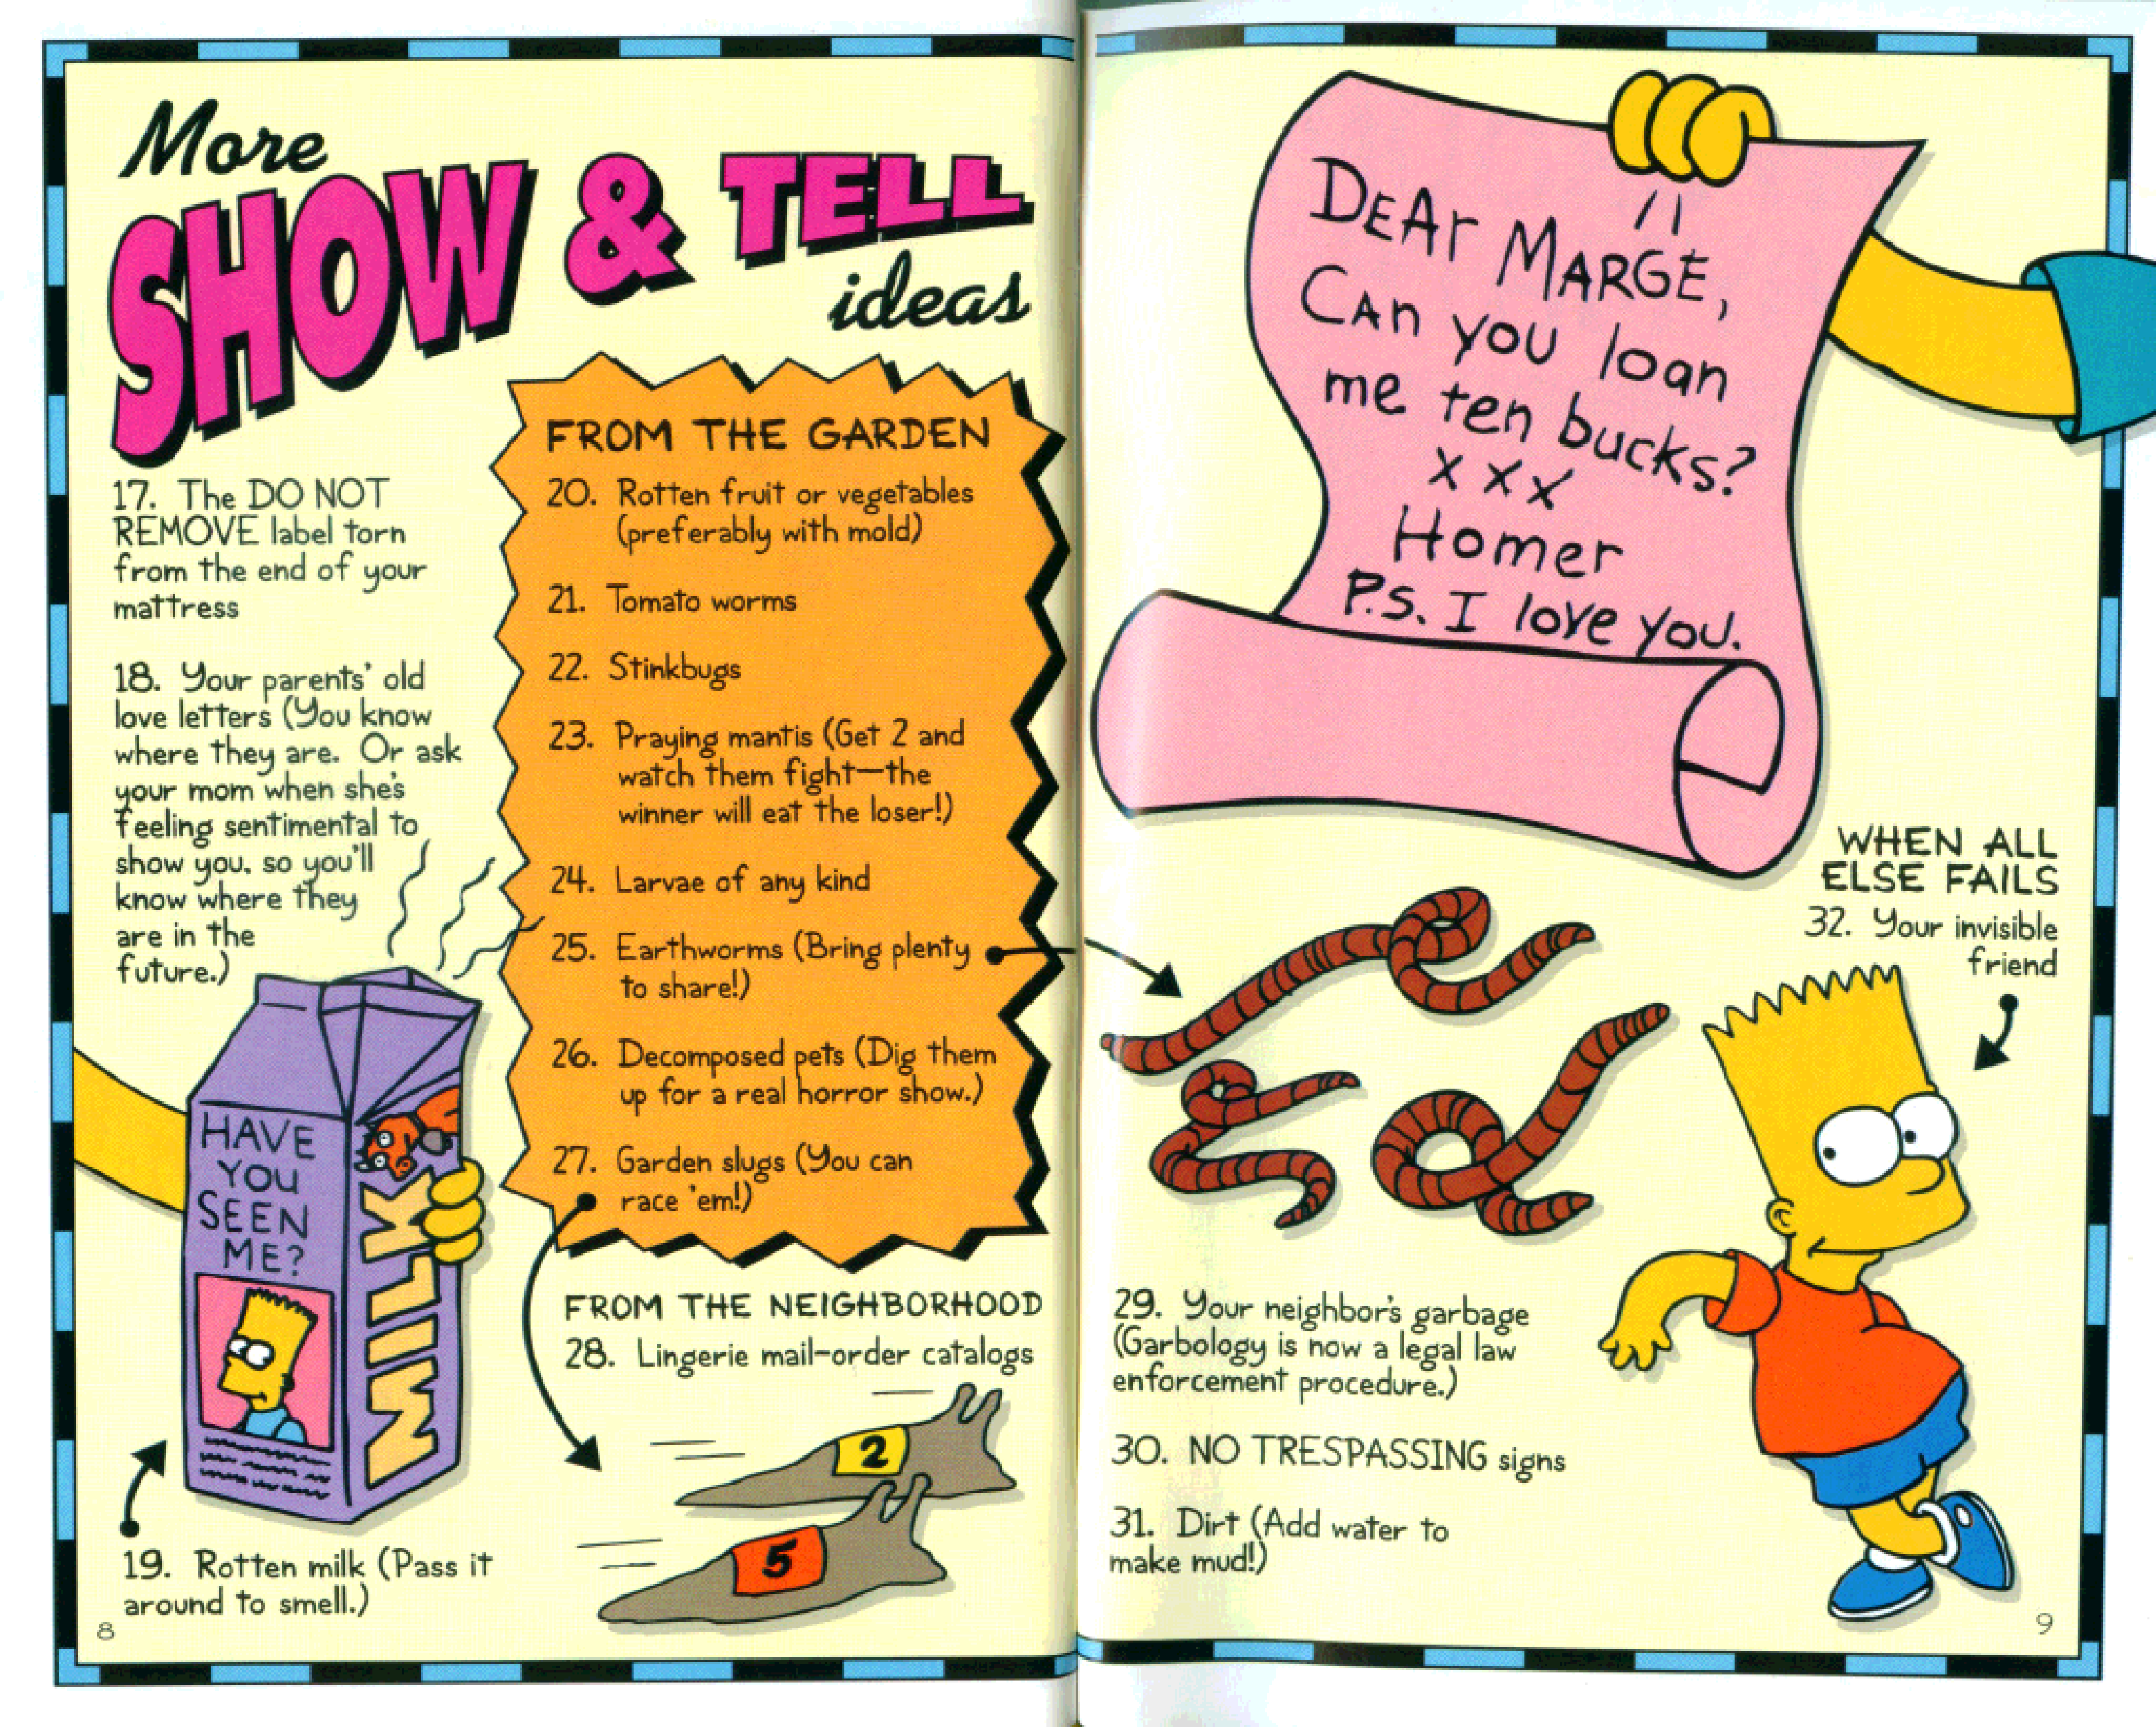 More
SHOW & TELL
ideas
17. The DO NOT
REMOVE label torn
from the end of your
mattress
18. Your parents' old
love letters (You know
where they are. Or ask
your mom when she's
feeling sentimental to
show you, so you'll
know where they
are in the
future.)
HAVE
YOU
SEEN
ME?
MILK
19. Rotten milk (Pass it
around to smell.)
8
FROM THE GARDEN
20. Rotten fruit or vegetables
(preferably with mold)
21. Tomato worms
22. Stinkbugs
23. Praying mantis (Get 2 and
watch them fight—the
winner will eat the loser!)
24. Larvae of any kind
25. Earthworms (Bring plenty
to share!)
26. Decomposed pets (Dig them
up for a real horror show.)
27. Garden slugs (You can
race 'em!)
FROM THE NEIGHBORHOOD
28. Lingerie mail-order catalogs
2
5
DEAr MARGE,
CAn you loan
me ten bucks?
x x x
Homer
P.S. I love you.
29. Your neighbor's garbage
(Garbology is now a legal law
enforcement procedure.)
30. NO TRESPASSING signs
31. Dirt (Add water to
make mud!)
WHEN ALL
ELSE FAILS
32. Your invisible
friend
9